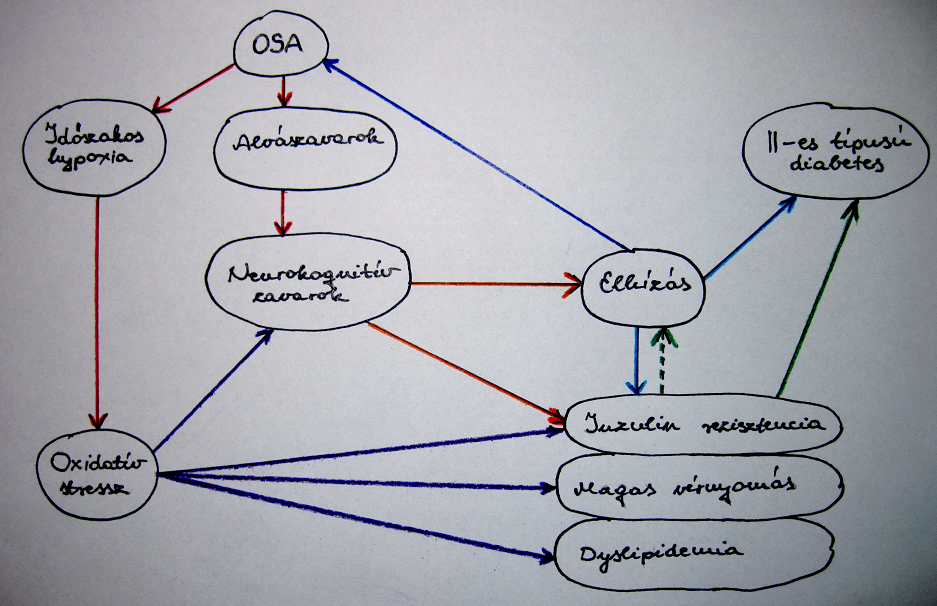 OSA
Időszakos
hypoxia
Alvászavarok
II-es típusú
diabetes
Neurokognitív
zavarok
Elhízás
Inzulin rezisztencia
Oxidatív
stressz
Magas vérnyomás
Dyslipidemia